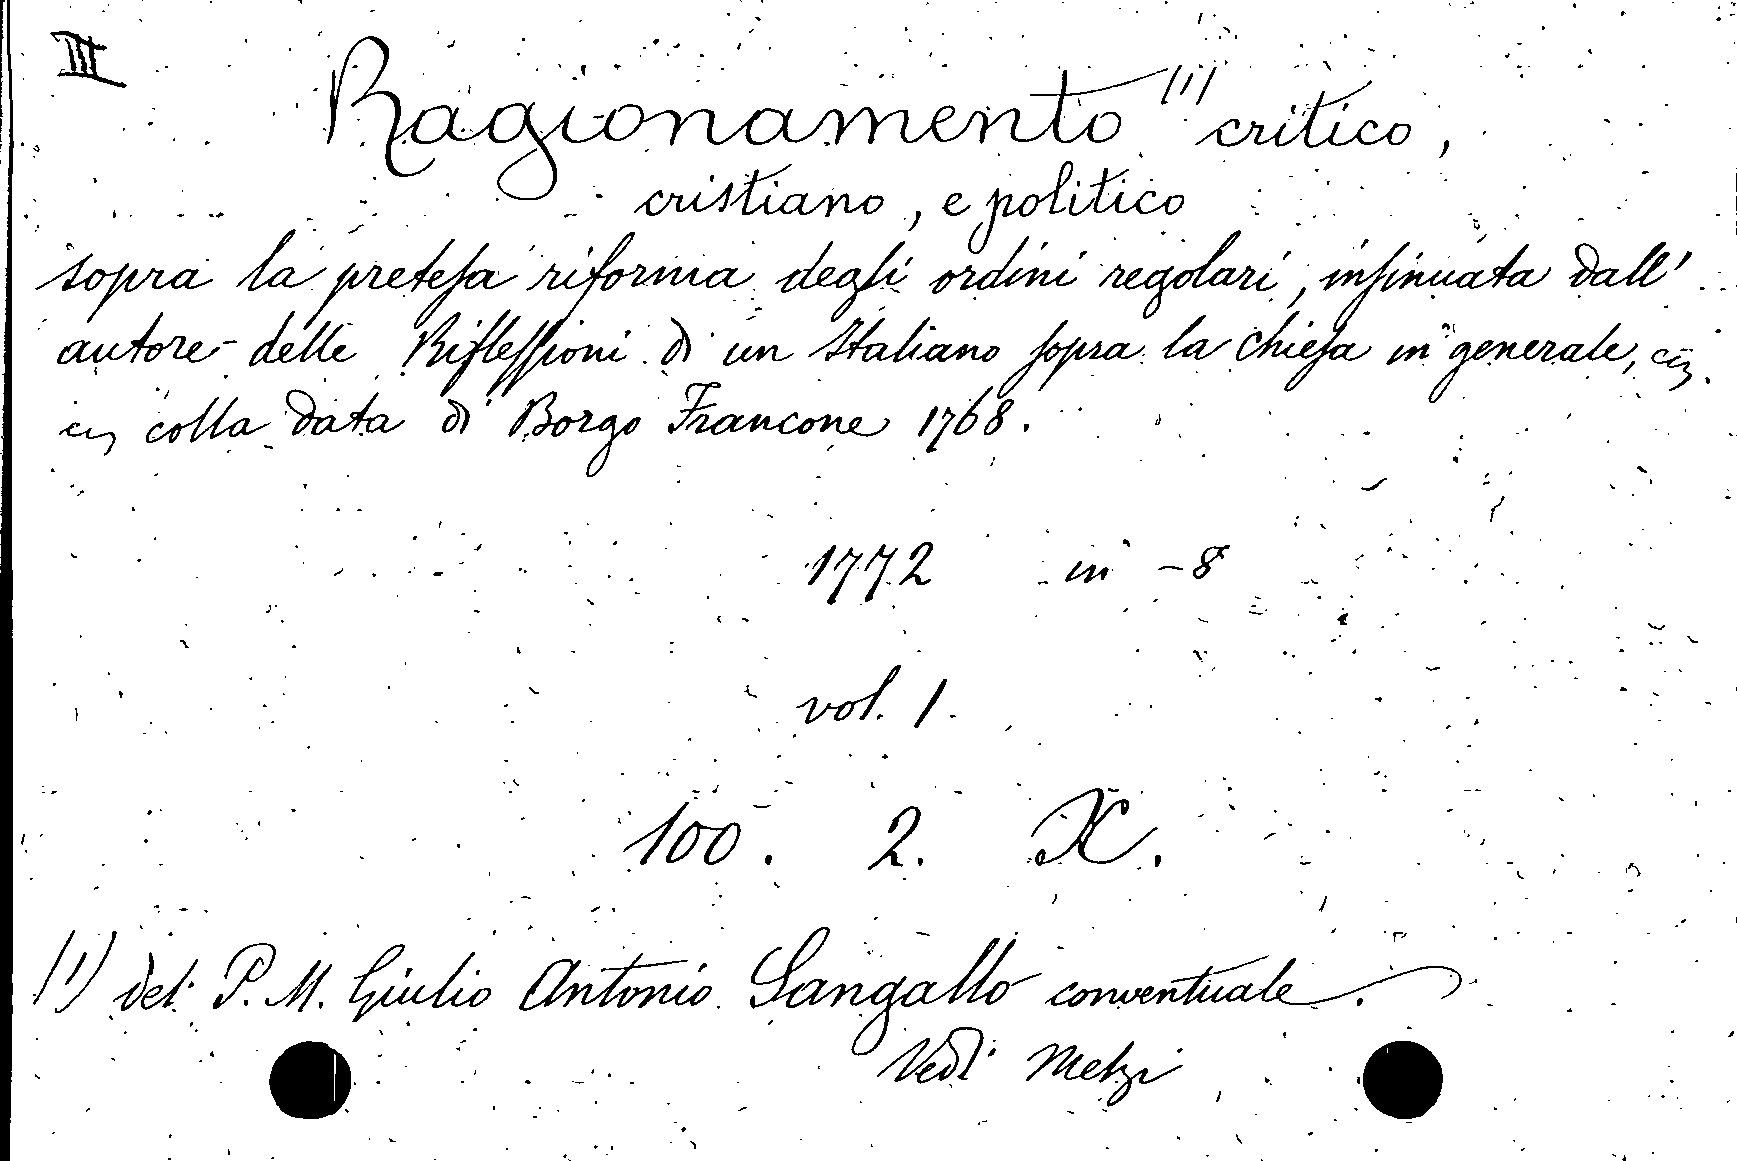 III
Ragionamento (1) critico,
cristiano, e politico
sopra la pretesa riforma degli ordini regolari, insinuata dall'
autore delle Riflessioni di un Italiano sopra la chiesa in generale,
colla data di Borgo Francone 1768.
1772 in -8
vol. 1.
100. 2. X.
(1) del P. M. Giulio Antonio Sangallo conventuale.
Vedi Melzi